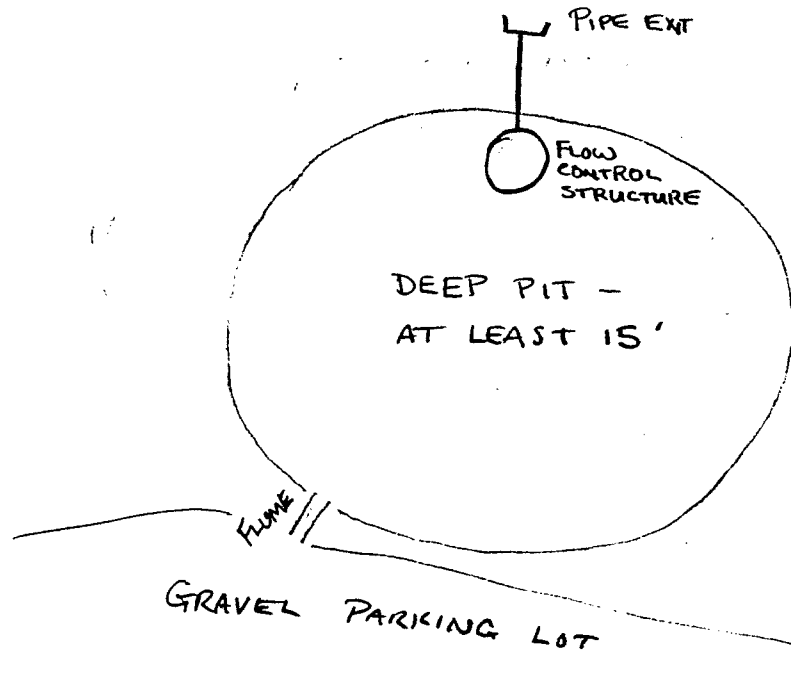 PIPE EXIT
FLOW
CONTROL
STRUCTURE
DEEP PIT –
AT LEAST 15'
FLUME
GRAVEL PARKING LOT